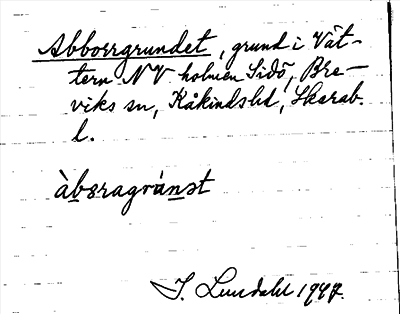 Abborrgrundet, grund i Vät-
tern NV holmen Sidö, Bre-
viks sn, Kåkinds hd, Skarab.
l.
àbsragrúnst
I. Lundahl 1947.